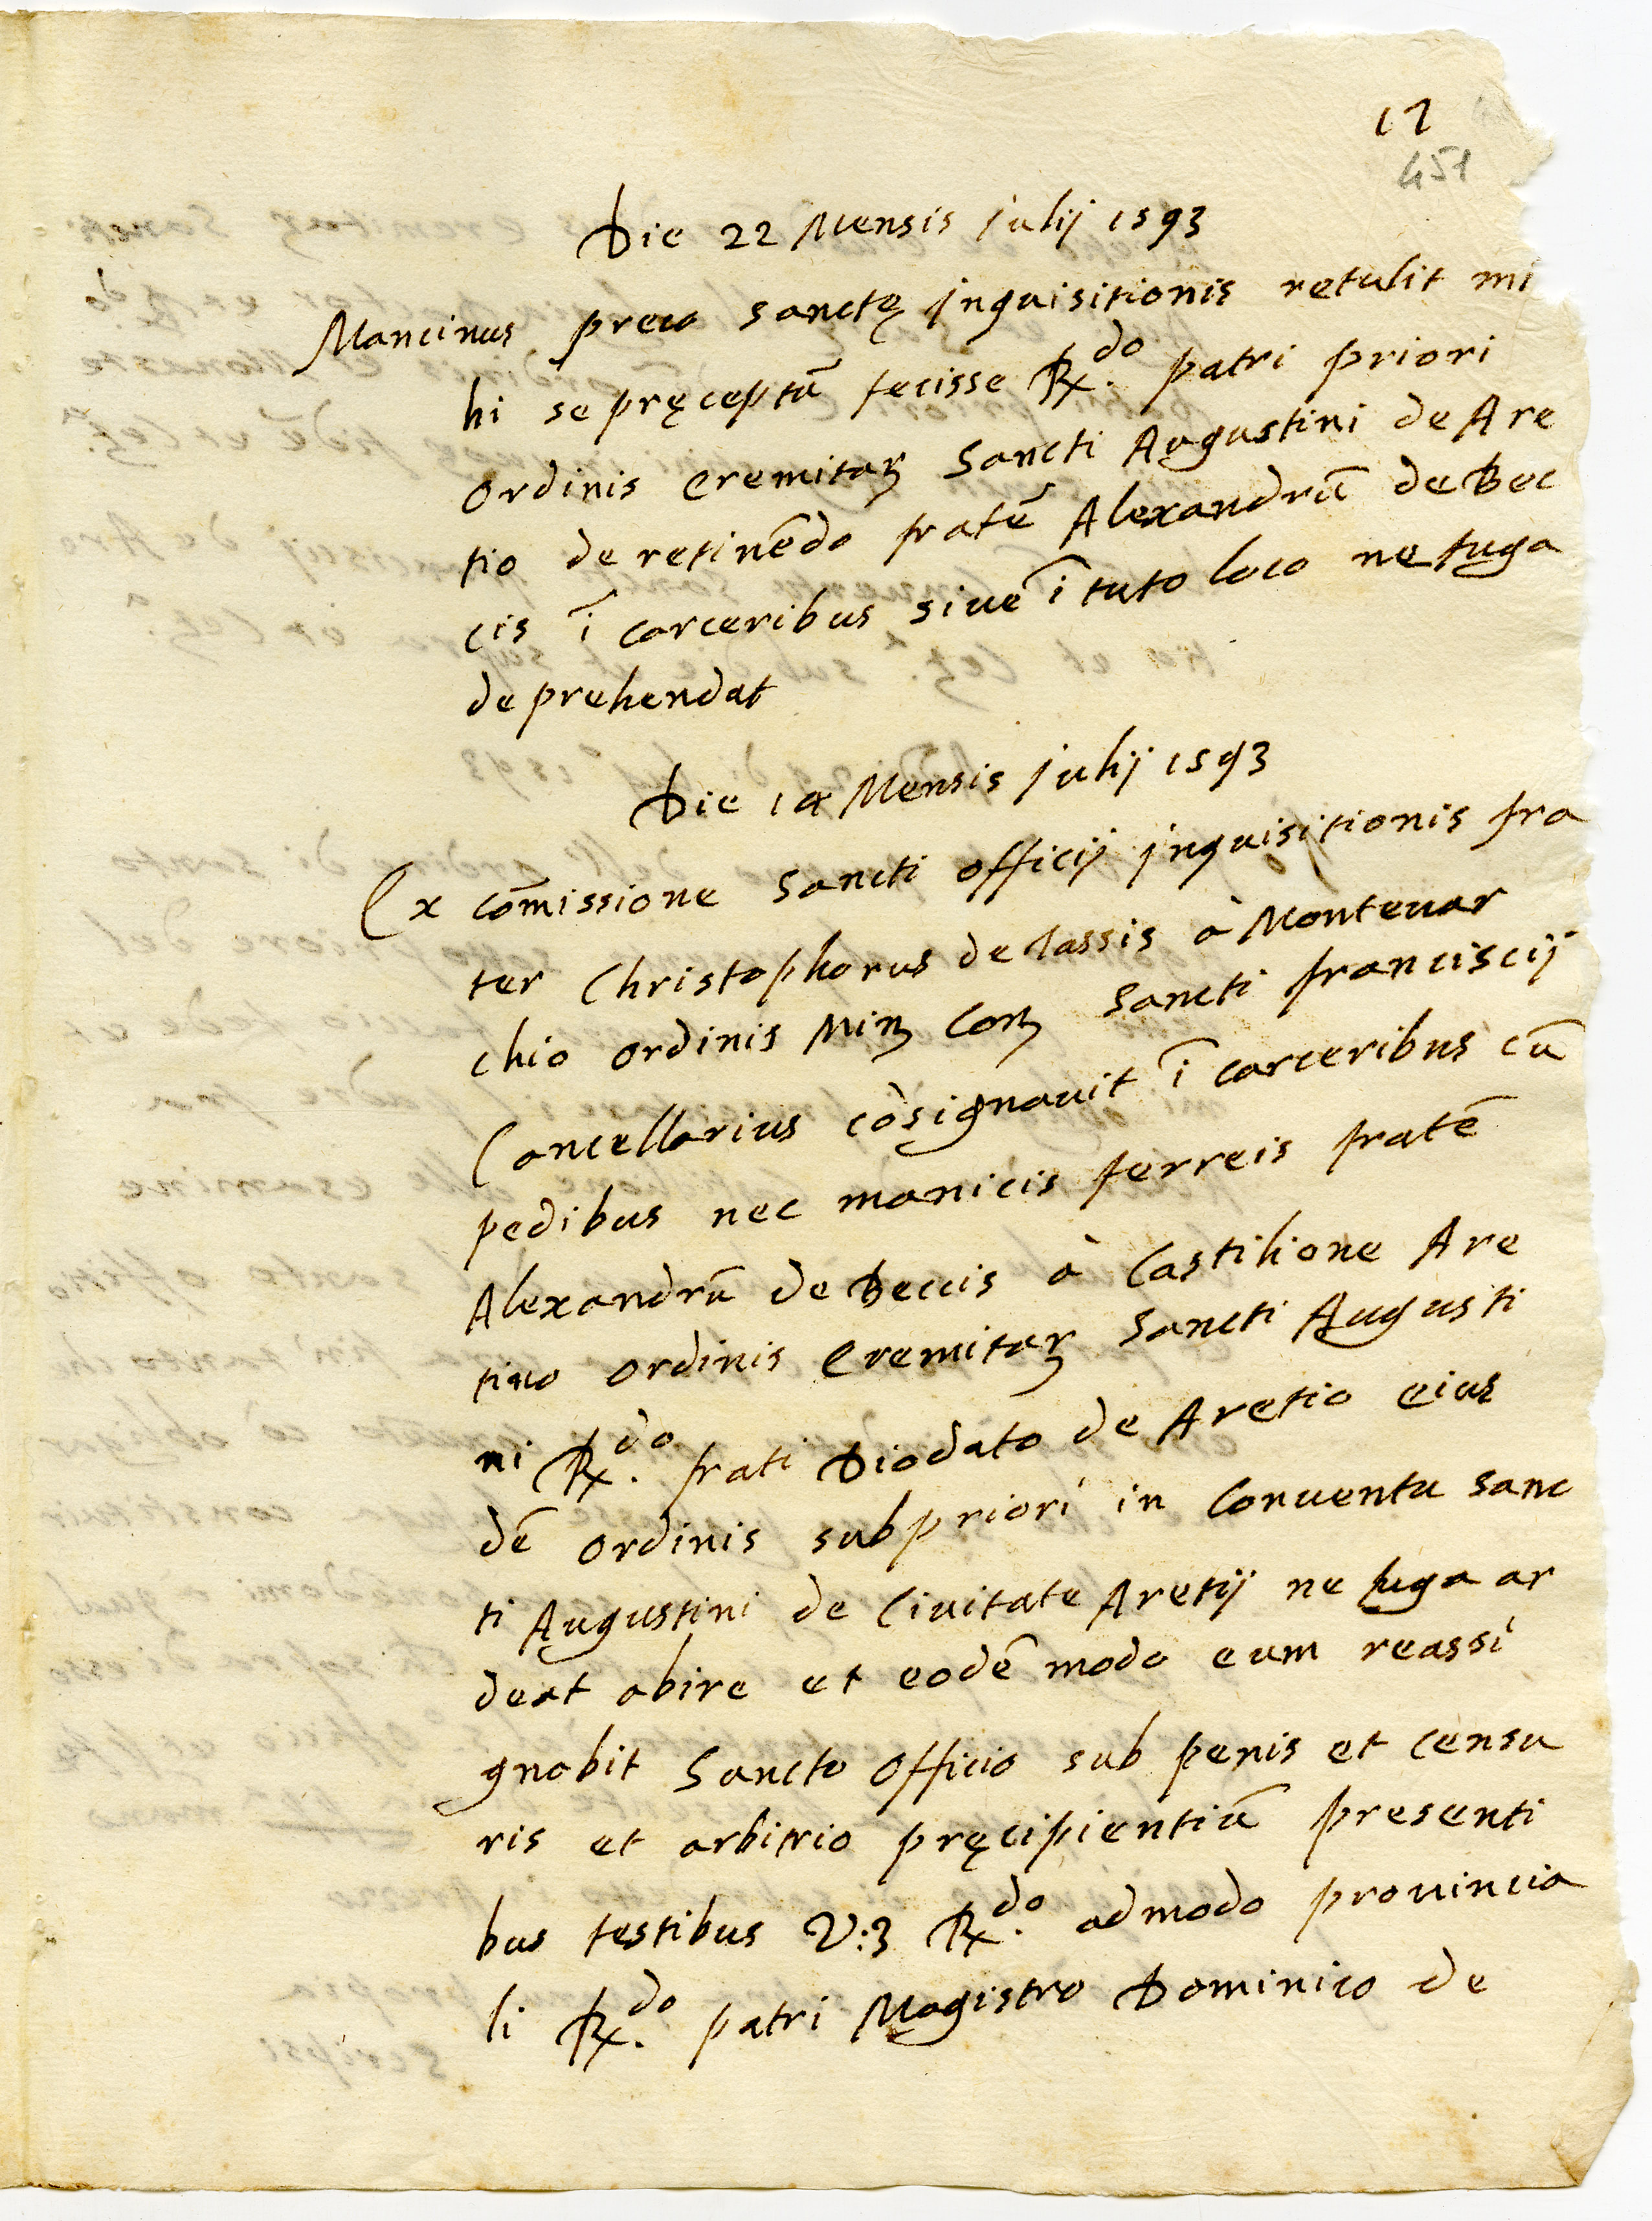 17
451
Die 22 Mensis Julij 1593
Mancinus preco sanctę jnquisitionis retulit mi
hi se pręceptū fecisse Rx.do patri priori
ordinis eremitaꝝ Sancti Augustini de Are
tio de retinēdo fratē Alexandrū de Bec
cis ī carceribus siue ī tuto loco ne fuga
deprehendat
Die 14 Mensis Julij 1593
Ex cōmissione Sancti officij jnquisitionis fra
ter Christophorus de Tassis à Monteuar
chio ordinis Minꝝ Conꝝ Sancti franciscij
Cancellarius cōsignauit ī carceribus cū
pedibus nec manicis ferreis fratē
Alexandrū de Beccis à Castilione Are
tino ordinis Eremitaꝝ Sancti Augusti
ni Rx.do frati Diodato de Aretio eius
dē ordinis subpriori in Conuentu Sanc
ti Augustini de Ciuitate Aretij ne fuga ar
deat abire et eodē modo eum reassi
gnabit Sancto Officio sub penis et censu
ris et arbitrio pręcipientiū presenti
bus testibus V:ꝫ Rx.do admodo prouincia
li Rx.do patri Magistro Dominico de